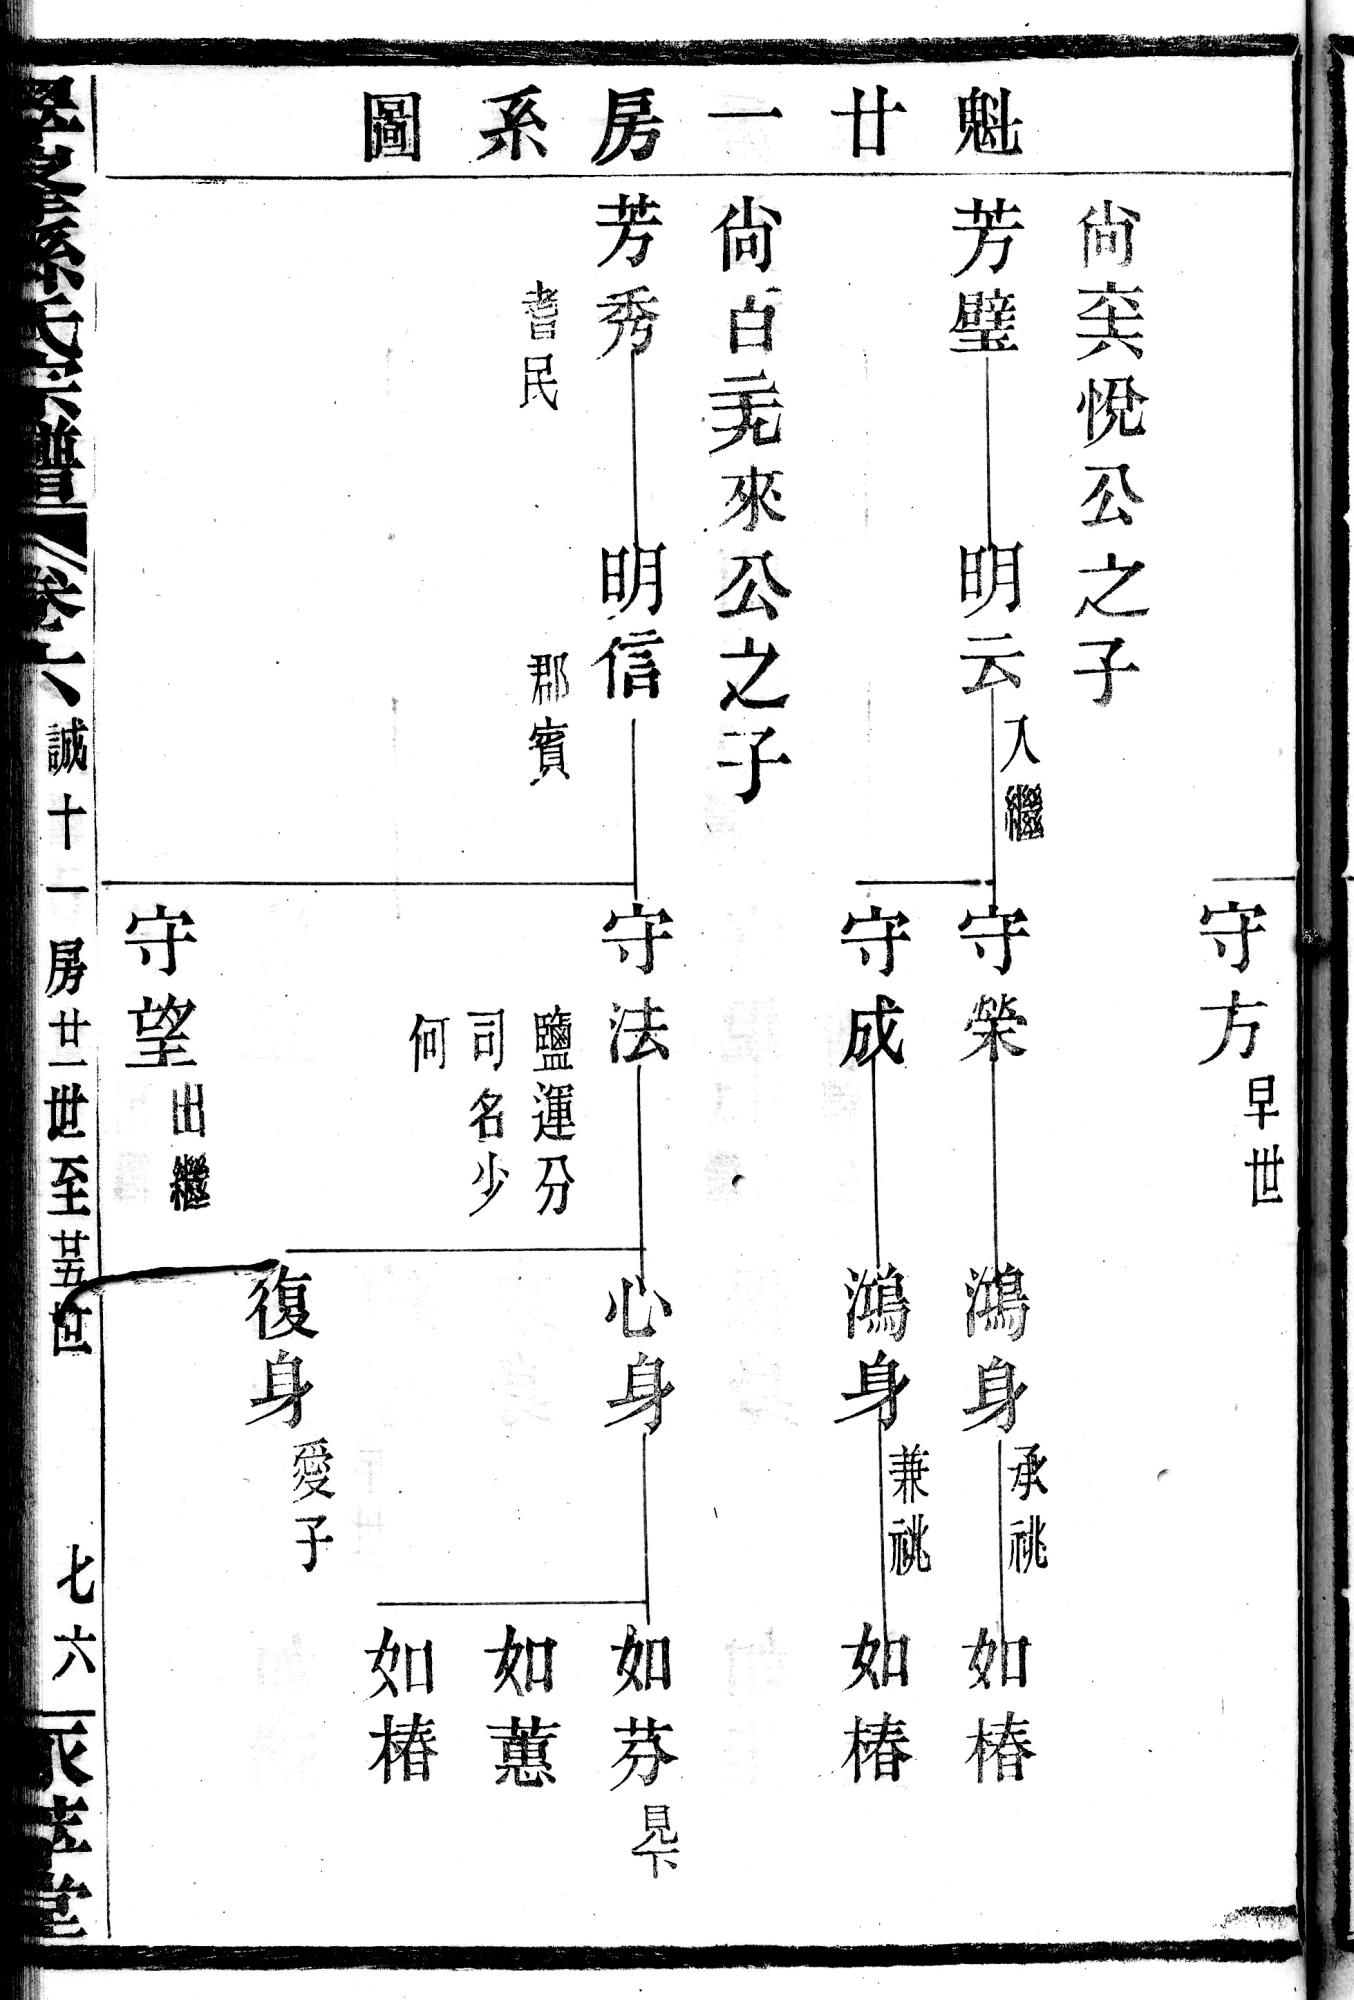 魁廿一房系圖
守方
早世
尙奕悅公之子
芳璧
明云
入繼
守榮
鴻身
承祧
如椿
守成
鴻身
兼祧
如椿
尙白
來公之子
芳秀
耆民
明信
郡賓
守法
鹽運分
司名少
何
心身
如芬
見下
如蕙
如椿
復身
愛子
守望
出繼
孫氏宗譜
卷六
誠十一房廿一世至廿五世
七六
堂